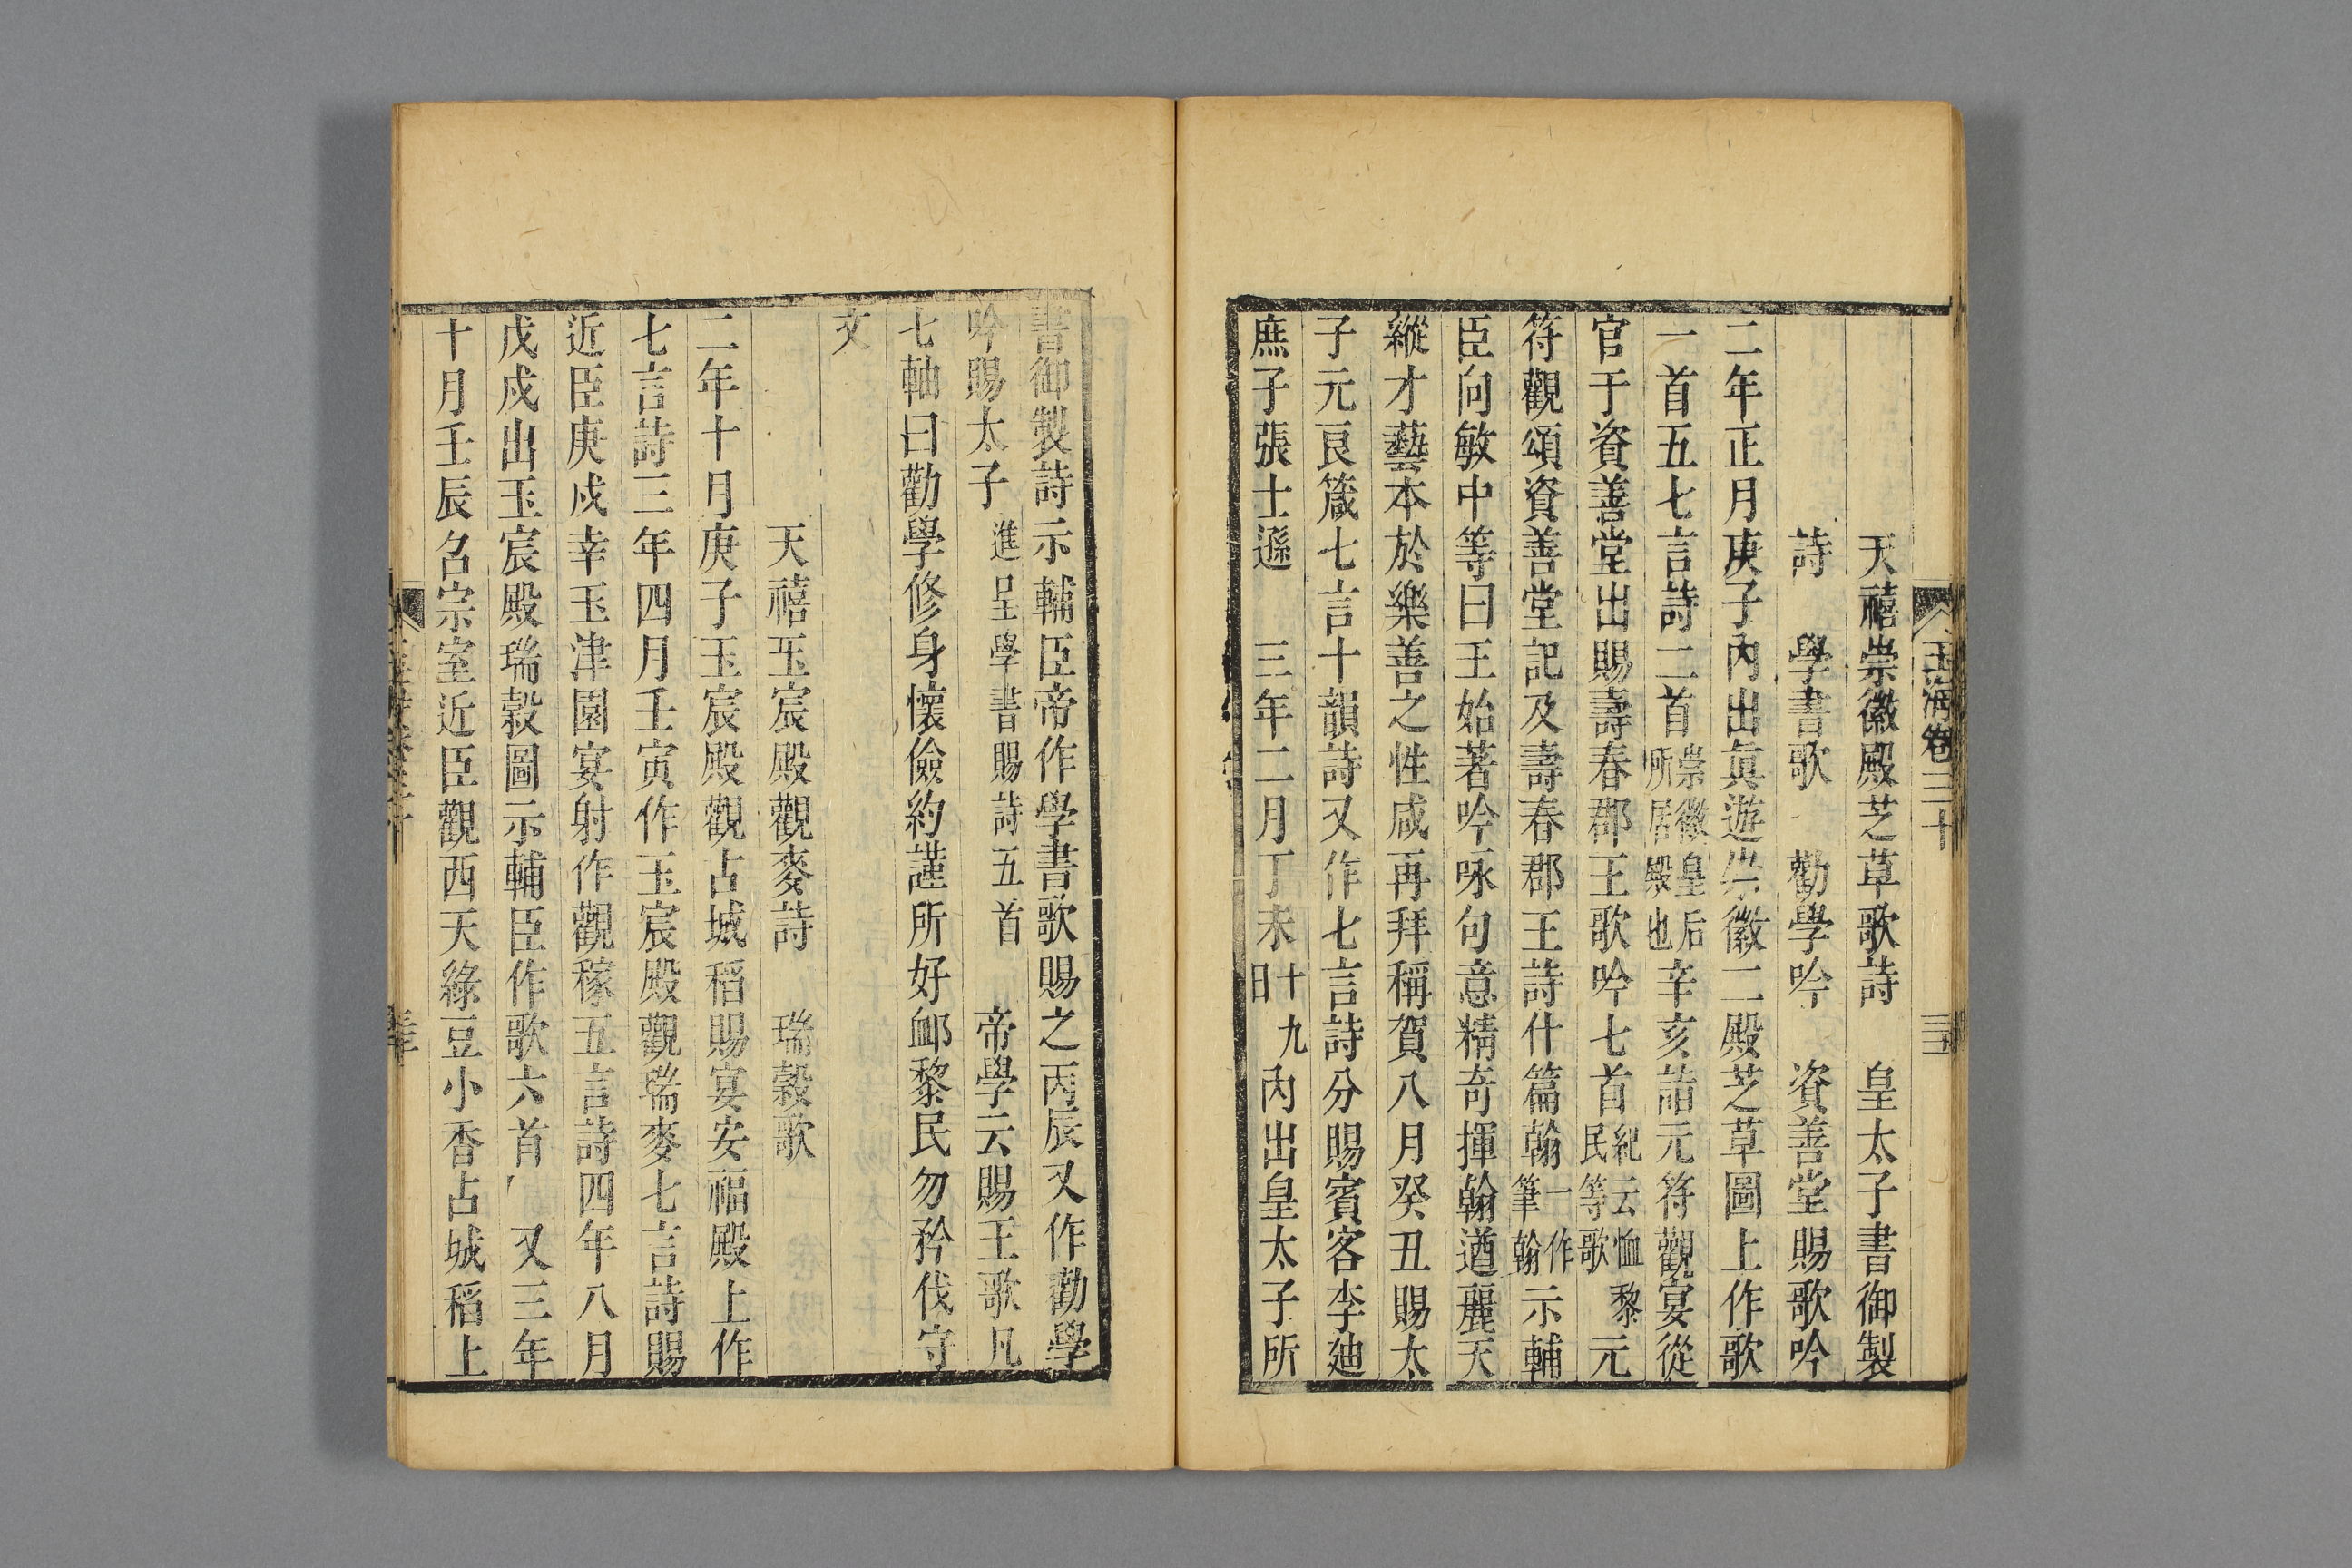 玉海卷三十
天禧崇徽殿芝草歌詩　皇太子書御製
詩　學書歌　勸學吟　資善堂賜歌吟
二年正月庚子內出眞遊崇徽二殿芝草圖上作歌
一首五七言詩二首崇徽皇后所居殿也辛亥詣元符觀宴從
官于資善堂出賜壽春郡王歌吟七首紀云恤黎民等歌元
符觀頌資善堂記及壽春郡王詩什篇翰一作筆翰示輔
臣向敏中等曰王始著吟咏句意精奇揮翰遒麗天
縱才藝本於樂善之性咸再拜稱賀八月癸丑賜太
子元良箴七言十韻詩又作七言詩分賜賓客李廸
庶子張士遜　三年二月丁未十九日內出皇太子所
書御製詩示輔臣帝作學書歌賜之丙辰又作勸學
吟賜太子進呈學書賜詩五首　帝學云賜王歌凡
七軸曰勸學修身懷儉約謹所好卹黎民勿矜伐守
文
天禧玉宸殿觀麥詩　瑞穀歌
二年十月庚子玉宸殿觀占城稻賜宴安福殿上作
七言詩三年四月壬寅作玉宸殿觀瑞麥七言詩賜
近臣庚戍幸玉津園宴射作觀稼五言詩四年八月
戊戍出玉宸殿瑞穀圖示輔臣作歌六首　又三年
十月壬辰名宗室近臣觀西天綠豆小香占城稻上